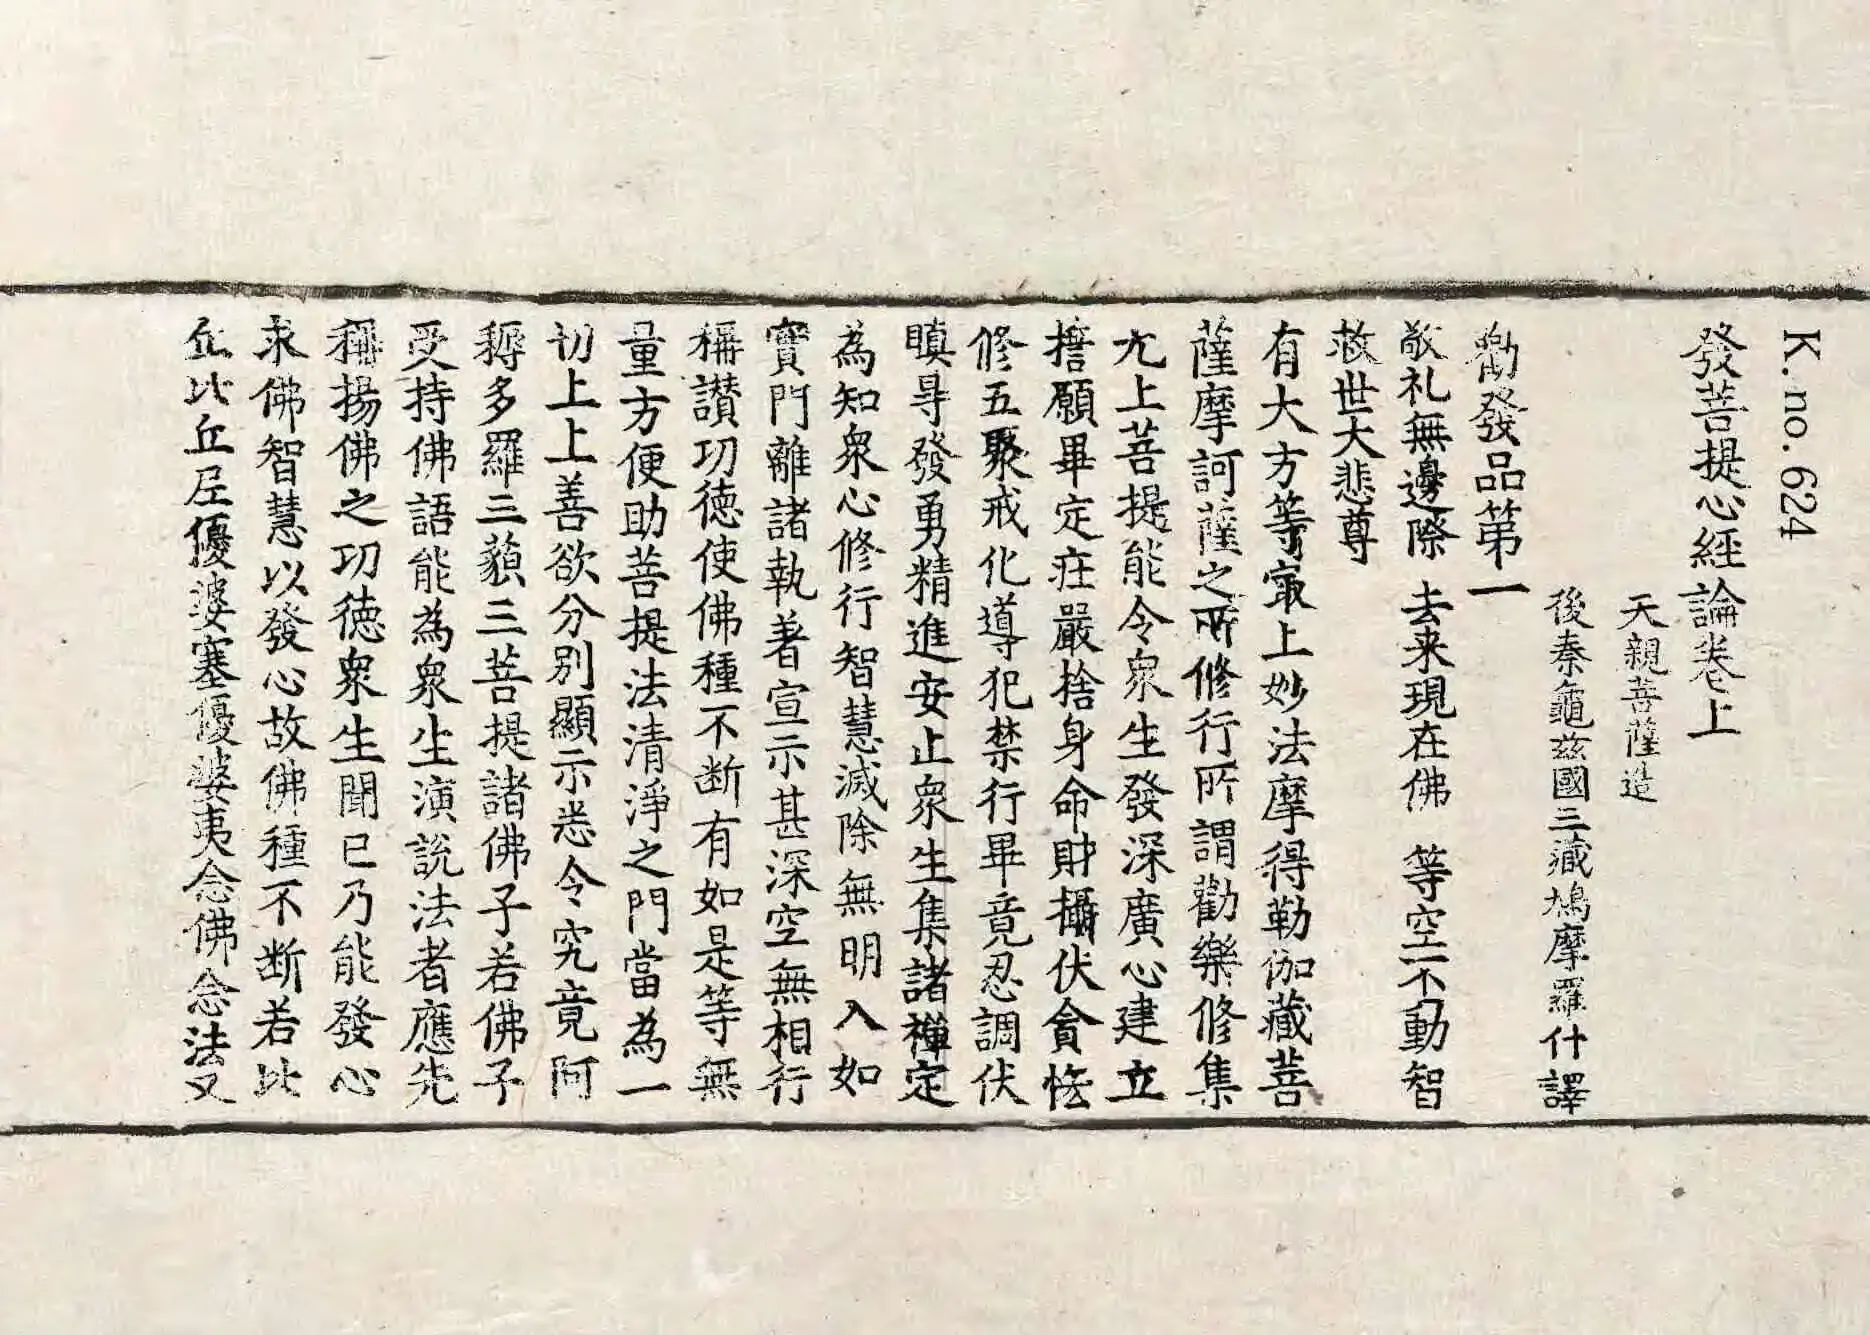 K.no.624
發菩提心經論卷上
天親菩薩造
後秦龜茲國三藏鳩摩羅什譯
勸發品第一
敬礼無邊際 去来現在佛 等空不動智
救世大悲尊
有大方等㝡上妙法摩得勒伽藏菩
薩摩訶薩之所修行所謂勸樂修集
无上菩提能令衆生發深廣心建立
擔願畢定莊嚴捨身命財攝伏貪悋
修五聚戒化導犯禁行畢竟忍調伏
瞋㝵發勇精進安止衆生集諸禅定
為知衆心修行智慧滅除無明入如
實門離諸執著宣示甚深空無相行
稱讃功德使佛種不断有如是等無
量方便助菩提法清淨之門當為一
切上上善欲分別顯示悉令究竟阿
耨多羅三藐三菩提諸佛子若佛子
受持佛語能為衆生演説法者應先
稱揚佛之功德衆生聞已乃能發心
求佛智慧以發心故佛種不断若比
丘比丘尼優婆塞優婆夷念佛念法又